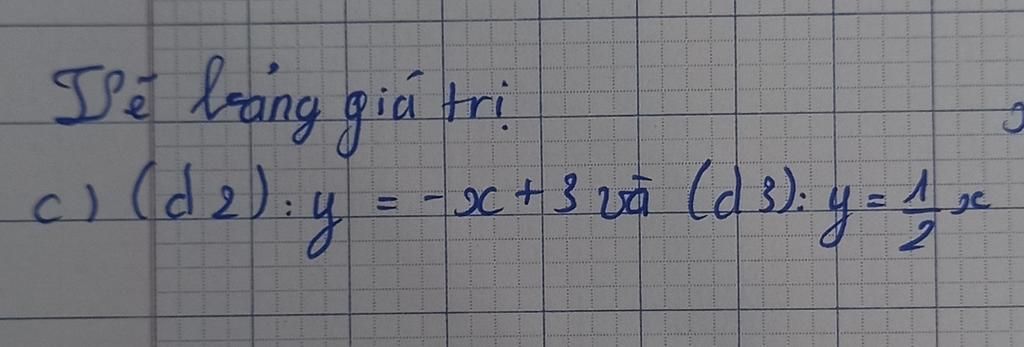 Vẽ bảng giá trị
c) (d2): y = -x + 3 và (d3): y = 1/2 x